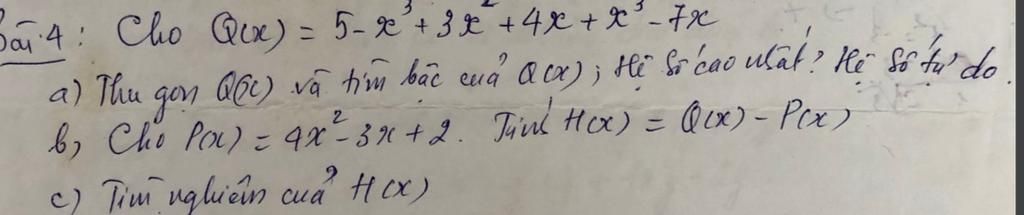 Bài 4: Cho Q(x) = 5 - x³ + 3x² + 4x + x³ - 7x
a) Thu gọn Q(x) và tìm bậc của Q(x); Hệ số cao nhất? Hệ số tự do.
b) Cho P(x) = 4x² - 3x + 2. Tính H(x) = Q(x) - P(x)
c) Tìm nghiệm của H(x)